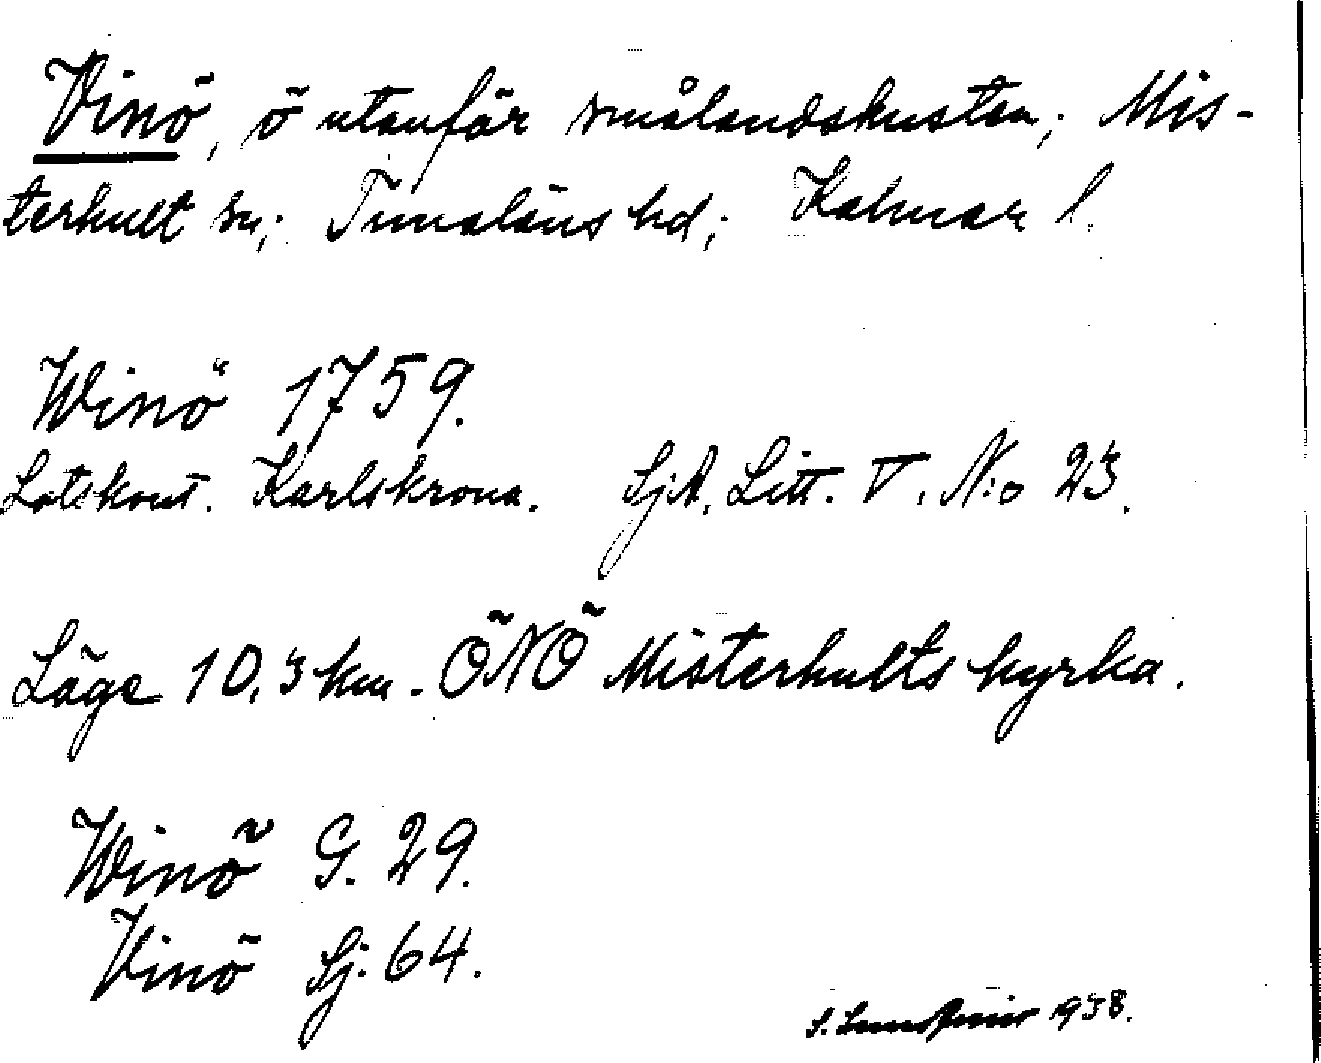 Vinö, ö utanför smålandskusten; Mis-
terhult sn; Tunaläns hd; Kalmar l.
Winö 1759.
Lotskont. Karlskrona. Sj.A. Litt. V. N:o 23.
Läge 10,3 km. ÖNÖ Misterhults kyrka.
Winö G. 29.
Vinö Sj. 64.
S. 1938.